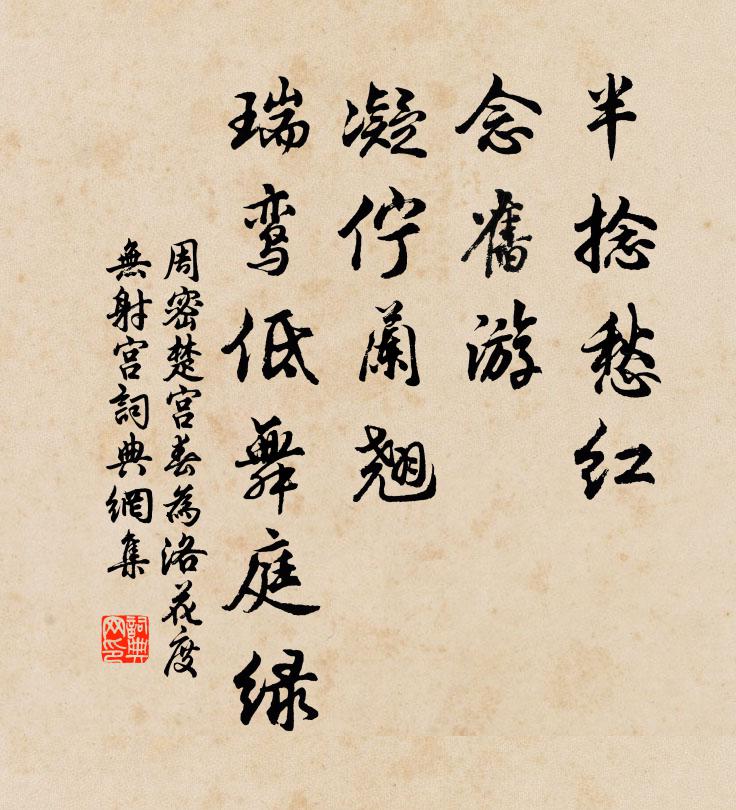 半捻愁红
念舊游
凝佇蘭翘
瑞鸾低舞庭绿
周密楚宫春為洛花度
無射宫詞典網集
詞典
网印